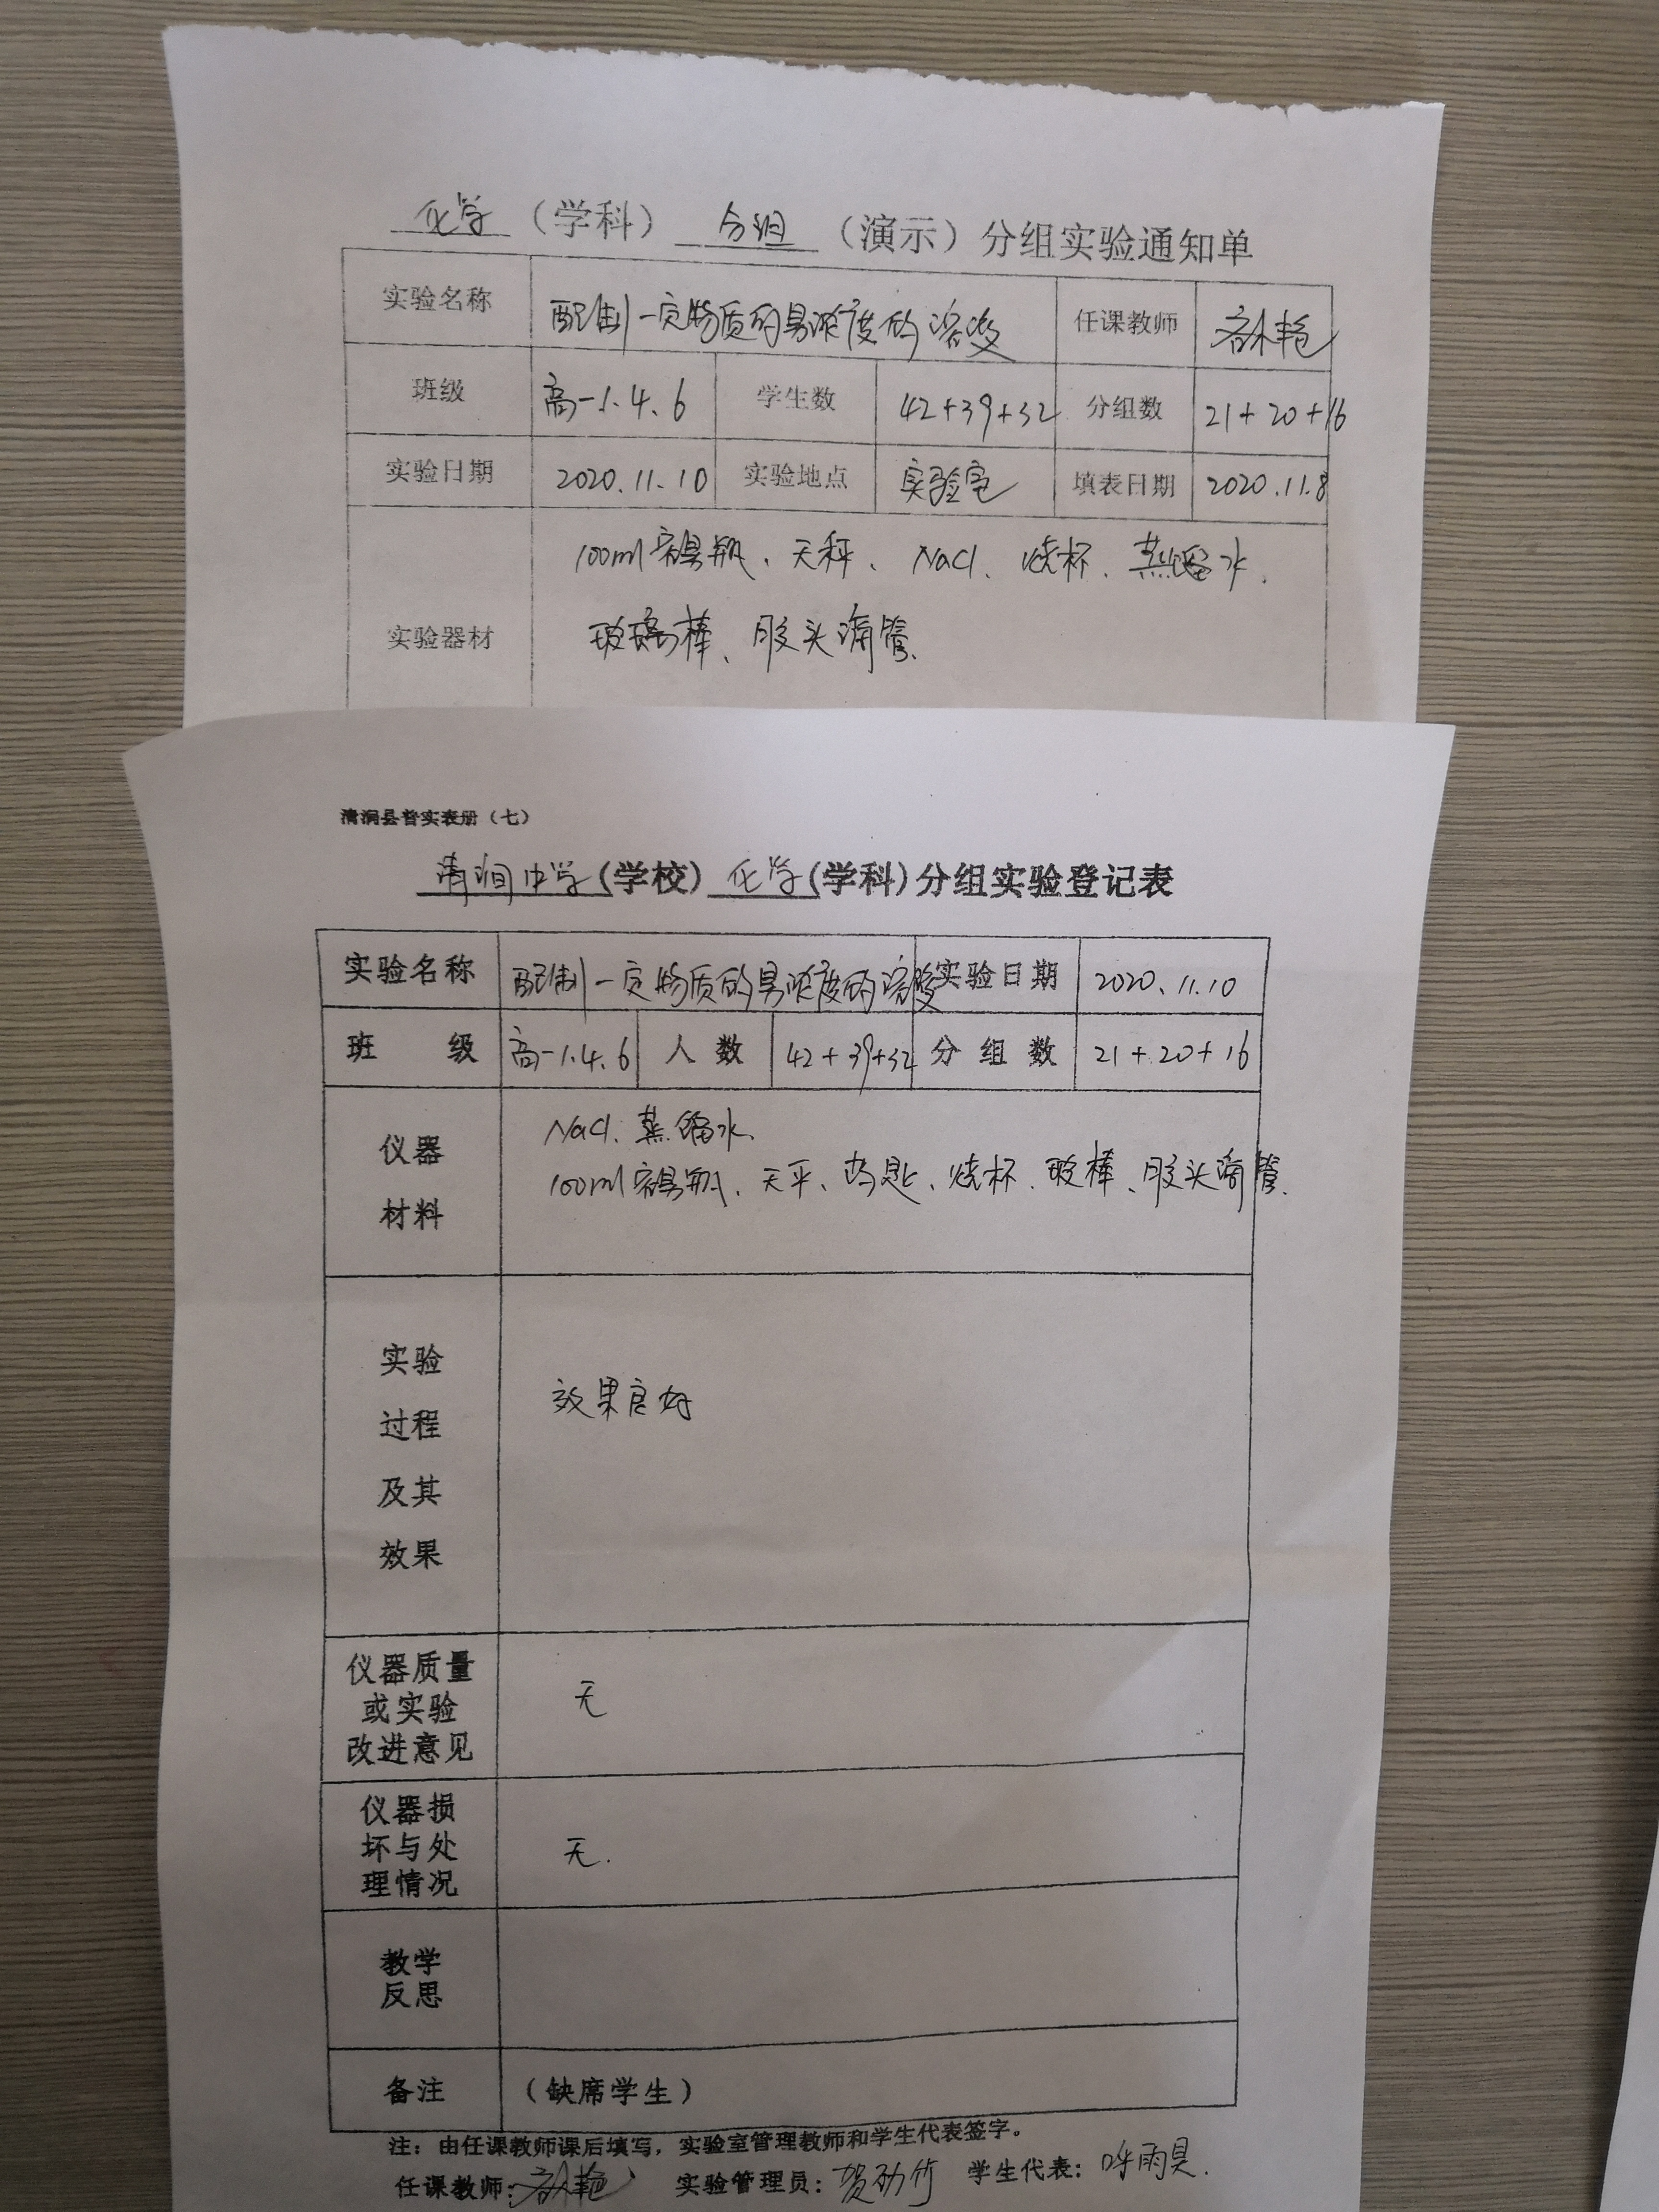 化学（学科）分组（演示）分组实验通知单
实验名称 配制一定物质的量浓度的溶液 任课教师
班级 高一1.4.6 学生数 42+39+32 分组数 21+20+16
实验日期 2020.11.10 实验地点 实验室 填表日期 2020.11.8
100ml容量瓶、天秤、NaCl、烧杯、蒸馏水、
实验器材 玻璃棒、胶头滴管、
清涧县普实表册（七）
清涧中学(学校)化学(学科)分组实验登记表
实验名称 配制一定物质的量浓度的溶液 实验日期 2020.11.10
班 级 高一1.4.6 人数 42+39+32 分组数 21+20+16
NaCl、蒸馏水、
仪器 100ml容量瓶、天平、药匙、烧杯、玻棒、胶头滴管、
材料
实验
过程 效果良好
及其
效果
仪器质量
或实验 无
改进意见
仪器损
坏与处 无.
理情况
教学
反思
备注 （缺席学生）
注：由任课教师课后填写，实验室管理教师和学生代表签字。
任课教师： 实验管理员： 学生代表：